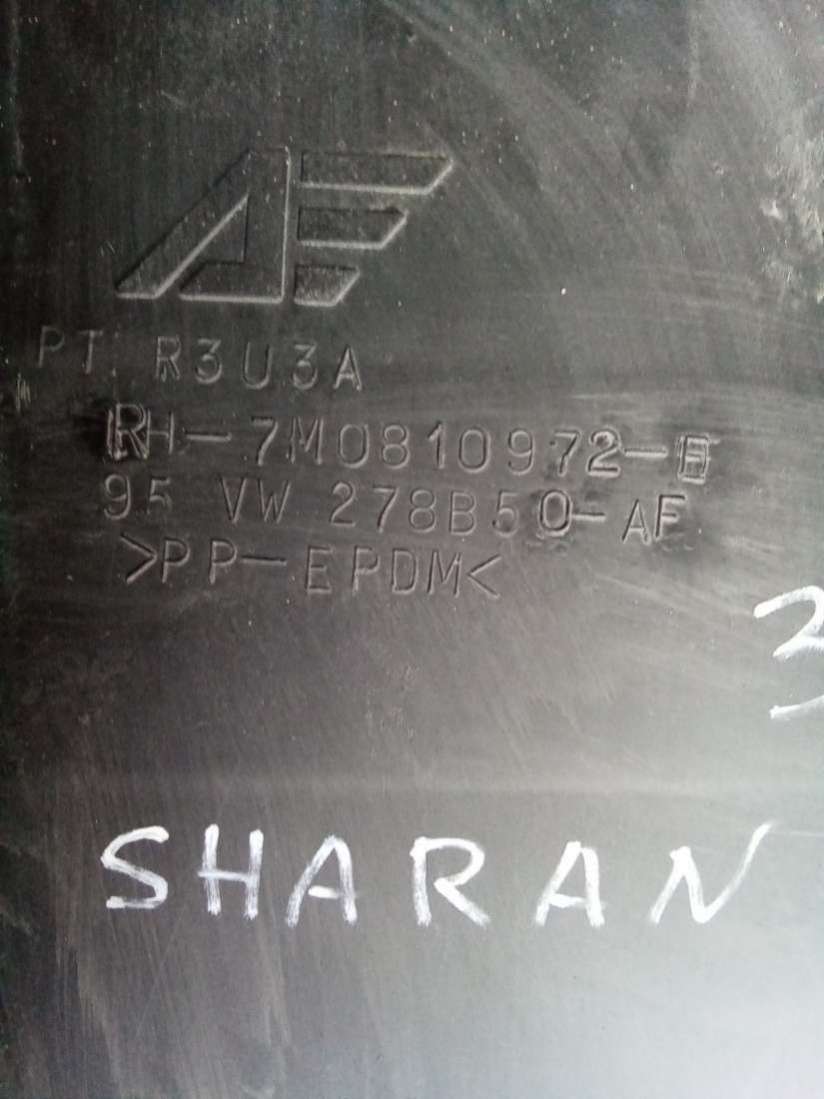 AF
PT R3U3A
RH-7M0810972-E
95 VW 278B50-AF
>PP-EPDM<
3
SHARAN